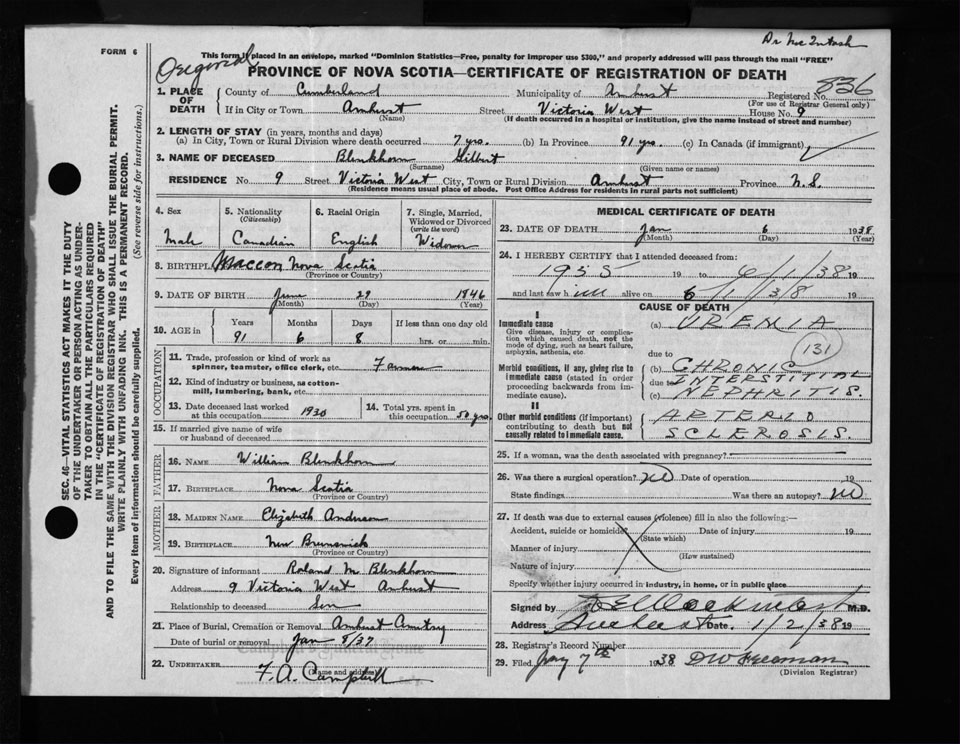 Dr MacIntosh
FORM 6
This form if placed in an envelope, marked "Dominion Statistics—Free, penalty for improper use $300," and properly addressed will pass through the mail "FREE"
Original
PROVINCE OF NOVA SCOTIA—CERTIFICATE OF REGISTRATION OF DEATH
836
1. PLACE OF DEATH County of Cumberland Municipality of Amherst Registered No.
(For use of Registrar General only)
If in City or Town Amherst Street Victoria West House No. 9
(Name) (If death occurred in a hospital or institution, give the name instead of street and number)
2. LENGTH OF STAY (in years, months and days)
(a) In City, Town or Rural Division where death occurred 7 yrs. (b) In Province 91 yrs. (c) In Canada (if immigrant)
3. NAME OF DECEASED Blenkhorn Gilbert
(Surname) (Given name or names)
RESIDENCE No. 9 Street Victoria West City, Town or Rural Division Amherst Province N.S.
(Residence means usual place of abode. Post Office Address for residents in rural parts not sufficient)
4. Sex Male
5. Nationality (Citizenship) Canadian
6. Racial Origin English
7. Single, Married, Widowed or Divorced (write the word) Widower
8. BIRTHPL Maccan Nova Scotia
(Province or Country)
9. DATE OF BIRTH June 29 1846
(Month) (Day) (Year)
10. AGE in Years Months Days If less than one day old
91 6 8 hrs. or min.
OCCUPATION
11. Trade, profession or kind of work as spinner, teamster, office clerk, etc. Farmer
12. Kind of industry or business, as cotton-mill, lumbering, bank, etc.
13. Date deceased last worked at this occupation 1930
14. Total yrs. spent in this occupation 50 yrs.
15. If married give name of wife or husband of deceased
FATHER
16. NAME William Blenkhorn
17. BIRTHPLACE Nova Scotia
(Province or Country)
MOTHER
18. MAIDEN NAME Elizabeth Anderson
19. BIRTHPLACE New Brunswick
(Province or Country)
20. Signature of informant Roland M Blenkhorn
Address 9 Victoria West Amherst
Relationship to deceased Son
21. Place of Burial, Cremation or Removal Amherst
Date of burial or removal Jan 8/37
Campbell's Funeral Home
22. UNDERTAKER F. A. Campbell
(Name and address)
MEDICAL CERTIFICATE OF DEATH
23. DATE OF DEATH Jan 6 1938
(Month) (Day) (Year)
24. I HEREBY CERTIFY that I attended deceased from:
1935 19 to 6/1/38 19
and last saw him alive on 6/1/38 19
CAUSE OF DEATH
I
Immediate cause
Give disease, injury or complication which caused death, not the mode of dying, such as heart failure, asphyxia, asthenia, etc.
(a) UREMIA
131
due to
Morbid conditions, if any, giving rise to immediate cause (stated in order proceeding backwards from immediate cause).
(b) CHRONIC
due to INTERSTITIAL
(c) NEPHRITIS.
II
Other morbid conditions (if important) contributing to death but not causally related to immediate cause.
ARTERIO
SCLEROSIS.
25. If a woman, was the death associated with pregnancy?
26. Was there a surgical operation? No Date of operation 19
State findings Was there an autopsy? No
27. If death was due to external causes (violence) fill in also the following:—
Accident, suicide or homicide Date of injury 19
(State which)
Manner of injury
(How sustained)
Nature of injury
Specify whether injury occurred in industry, in home, or in public place
Signed by M.D.
Address Amherst Date 1/2/38 19
28. Registrar's Record Number
29. Filed Jany 7th 1938 DW Freeman
(Division Registrar)
SEC. 46—VITAL STATISTICS ACT MAKES IT THE DUTY
OF THE UNDERTAKER OR PERSON ACTING AS UNDER-
TAKER TO OBTAIN ALL THE PARTICULARS REQUIRED
IN THE "CERTIFICATE OF REGISTRATION OF DEATH"
AND TO FILE THE SAME WITH THE DIVISION REGISTRAR WHO SHALL ISSUE THE BURIAL PERMIT.
WRITE PLAINLY WITH UNFADING INK. THIS IS A PERMANENT RECORD.
Every item of information should be carefully supplied. (See reverse side for instructions.)